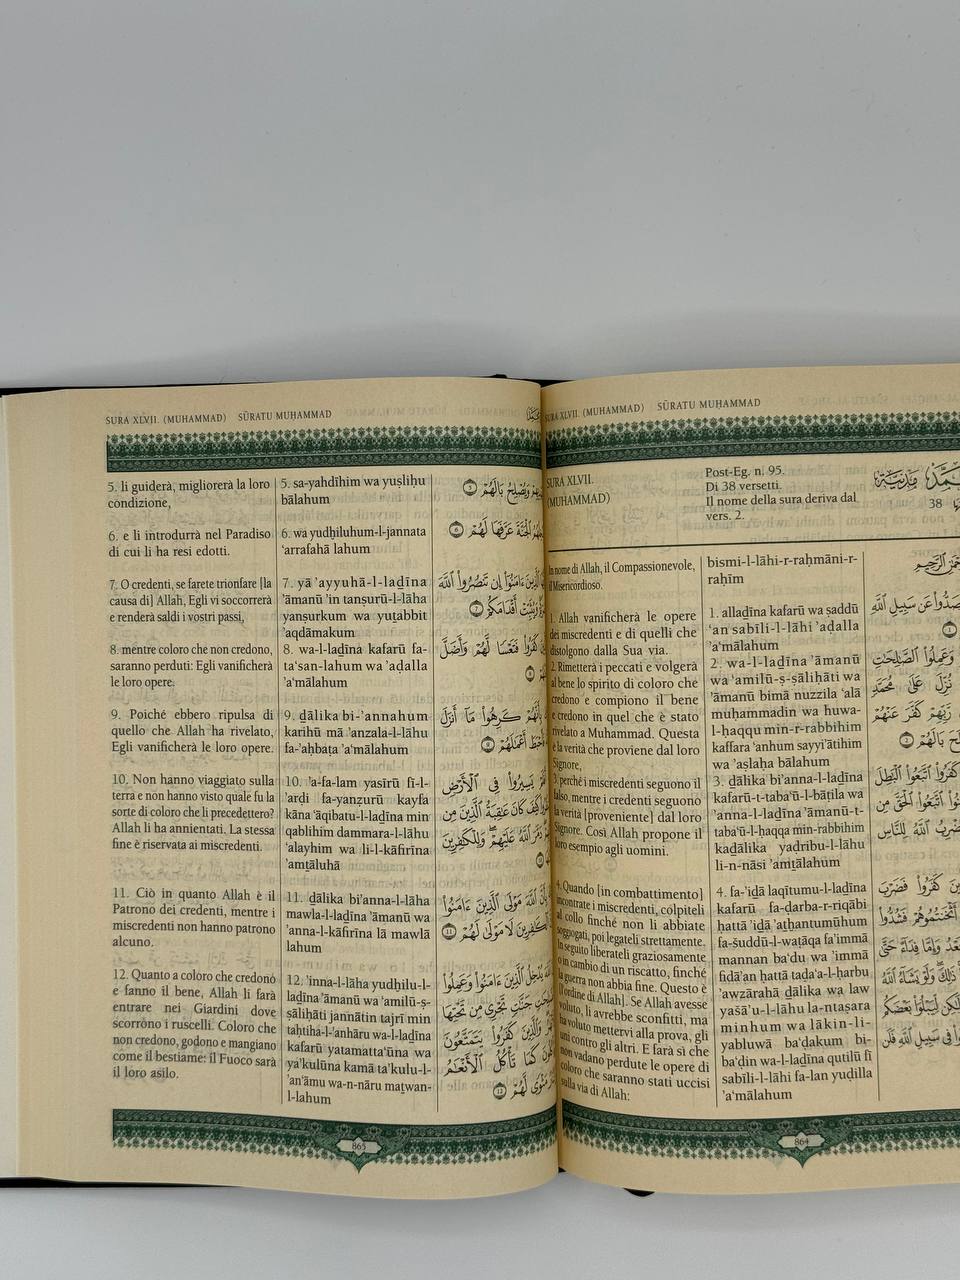 SURA XLVII. (MUHAMMAD) SŪRATU MUḤAMMAD
SURA XLVII.
(MUHAMMAD)
Post-Eg. n. 95.
Di 38 versetti.
Il nome della sura deriva dal
vers. 2.
مَدَنِيَّة
38
In nome di Allah, il Compassionevole,
il Misericordioso.
1. Allah vanificherà le opere
dei miscredenti e di quelli che
distolgono dalla Sua via.
2. Rimetterà i peccati e volgerà
al bene lo spirito di coloro che
credono e compiono il bene
e credono in quel che è stato
rivelato a Muhammad. Questa
è la verità che proviene dal loro
Signore,
3. perché i miscredenti seguono il
falso, mentre i credenti seguono
la verità [proveniente] dal loro
Signore. Così Allah propone il
loro esempio agli uomini.
4. Quando [in combattimento]
incontrate i miscredenti, colpiteli
al collo finché non li abbiate
soggiogati, poi legateli strettamente.
In seguito liberateli graziosamente
o in cambio di un riscatto, finché
la guerra non abbia fine. Questo è
[l'ordine di Allah]. Se Allah avesse
voluto, li avrebbe sconfitti, ma
ha voluto mettervi alla prova, gli
uni contro gli altri. E farà sì che
non vadano perdute le opere di
coloro che saranno stati uccisi
sulla via di Allah:
bismi-l-lāhi-r-raḥmāni-r-
raḥīm
1. alladīna kafarū wa ṣaddū
‘an sabīli-l-lāhi ’aḍalla
’a‘mālahum
2. wa-l-ladīna ’āmanū
wa ‘amilū-ṣ-ṣāliḥāti wa
’āmanū bimā nuzzila ‘alā
muḥammadin wa huwa-
l-ḥaqqu min-r-rabbihim
kaffara ‘anhum sayyi’ātihim
wa ’aṣlaḥa bālahum
3. ḏālika bi’anna-l-laḏīna
kafarū-t-taba‘ū-l-bāṭila wa
’anna-l-laḏīna ’āmanū-t-
taba‘ū-l-ḥaqqa min-rabbihim
kaḏālika yaḍribu-l-lāhu
li-n-nāsi ’amṯālahum
4. fa-’iḏā laqītumu-l-laḏīna
kafarū fa-ḍarba-r-riqābi
ḥattā ’iḏā ’aṯḫantumūhum
fa-šuddū-l-waṯāqa fa’immā
mannan ba‘du wa ’immā
fidā’an ḥattā taḍa‘a-l-ḥarbu
’awzārahā ḏālika wa law
yašā’u-l-lāhu la-ntaṣara
minhum wa lākin-li-
yabluwā ba‘ḍakum bi-
ba‘ḍin wa-l-laḏīna qutilū fī
sabīli-l-lāhi fa-lan yuḍilla
’a‘mālahum
ٱلرَّحِيمِ
عَن سَبِيلِ ٱللَّهِ
وَعَمِلُوا۟ ٱلصَّٰلِحَٰتِ
نُزِّلَ عَلَىٰ مُحَمَّدٍ
رَّبِّهِمْ كَفَّرَ عَنْهُمْ
بَالَهُمْ
كَفَرُوا۟ ٱتَّبَعُوا۟ ٱلْبَٰطِلَ
ٱتَّبَعُوا۟ ٱلْحَقَّ مِن
ٱللَّهُ لِلنَّاسِ
كَفَرُوا۟ فَضَرْبَ
أَثْخَنتُمُوهُمْ فَشُدُّوا۟
وَإِمَّا فِدَآءً حَتَّىٰ
وَلَوْ يَشَآءُ ٱللَّهُ
لِّيَبْلُوَا۟ بَعْضَكُم
فِى سَبِيلِ ٱللَّهِ فَلَن
864
SURA XLVII. (MUHAMMAD) SŪRATU MUḤAMMAD
5. li guiderà, migliorerà la loro
condizione,
6. e li introdurrà nel Paradiso
di cui li ha resi edotti.
7. O credenti, se farete trionfare [la
causa di] Allah, Egli vi soccorrerà
e renderà saldi i vostri passi,
8. mentre coloro che non credono,
saranno perduti: Egli vanificherà
le loro opere.
9. Poiché ebbero ripulsa di
quello che Allah ha rivelato,
Egli vanificherà le loro opere.
10. Non hanno viaggiato sulla
terra e non hanno visto quale fu la
sorte di coloro che li precedettero?
Allah li ha annientati. La stessa
fine è riservata ai miscredenti.
11. Ciò in quanto Allah è il
Patrono dei credenti, mentre i
miscredenti non hanno patrono
alcuno.
12. Quanto a coloro che credono
e fanno il bene, Allah li farà
entrare nei Giardini dove
scorrono i ruscelli. Coloro che
non credono, godono e mangiano
come il bestiame: il Fuoco sarà
il loro asilo.
5. sa-yahdīhim wa yuṣliḥu
bālahum
6. wa yudḫiluhum-l-jannata
‘arrafahā lahum
7. yā ’ayyuhā-l-laḏīna
’āmanū ’in tanṣurū-l-lāha
yanṣurkum wa yuṯabbit
’aqdāmakum
8. wa-l-laḏīna kafarū fa-
ta‘san-lahum wa ’aḍalla
’a‘mālahum
9. ḏālika bi-’annahum
karihū mā ’anzala-l-lāhu
fa-’aḥbaṭa ’a‘mālahum
10. ’a-fa-lam yasīrū fī-l-
’arḍi fa-yanẓurū kayfa
kāna ‘āqibatu-l-laḏīna min
qablihim dammara-l-lāhu
‘alayhim wa li-l-kāfirīna
’amṯāluhā
11. ḏālika bi’anna-l-lāha
mawla-l-laḏīna ’āmanū wa
’anna-l-kāfirīna lā mawlā
lahum
12. ’inna-l-lāha yudḫilu-l-
laḏīna ’āmanū wa ‘amilū-ṣ-
ṣāliḥāti jannātin tajrī min
taḥtiha-l-’anhāru wa-l-laḏīna
kafarū yatamatta‘ūna wa
ya’kulūna kamā ta’kulu-l-
’an‘āmu wa-n-nāru maṯwan-
l-lahum
وَيُصْلِحُ بَالَهُمْ ٥
ٱلْجَنَّةَ عَرَّفَهَا لَهُمْ ٦
ٱلَّذِينَ ءَامَنُوٓا۟ إِن تَنصُرُوا۟ ٱللَّهَ
وَيُثَبِّتْ أَقْدَامَكُمْ ٧
كَفَرُوا۟ فَتَعْسًا لَّهُمْ وَأَضَلَّ
٨
كَرِهُوا۟ مَآ أَنزَلَ
أَعْمَٰلَهُمْ ٩
يَسِيرُوا۟ فِى ٱلْأَرْضِ
كَيْفَ كَانَ عَٰقِبَةُ ٱلَّذِينَ مِن
ٱللَّهُ عَلَيْهِمْ وَلِلْكَٰفِرِينَ
١٠
ٱللَّهَ مَوْلَى ٱلَّذِينَ ءَامَنُوا۟
لَا مَوْلَىٰ لَهُمْ ١١
يُدْخِلُ ٱلَّذِينَ ءَامَنُوا۟ وَعَمِلُوا۟
جَنَّٰتٍ تَجْرِى مِن تَحْتِهَا
وَٱلَّذِينَ كَفَرُوا۟ يَتَمَتَّعُونَ
كَمَا تَأْكُلُ ٱلْأَنْعَٰمُ
مَثْوًى لَّهُمْ ١٢
865